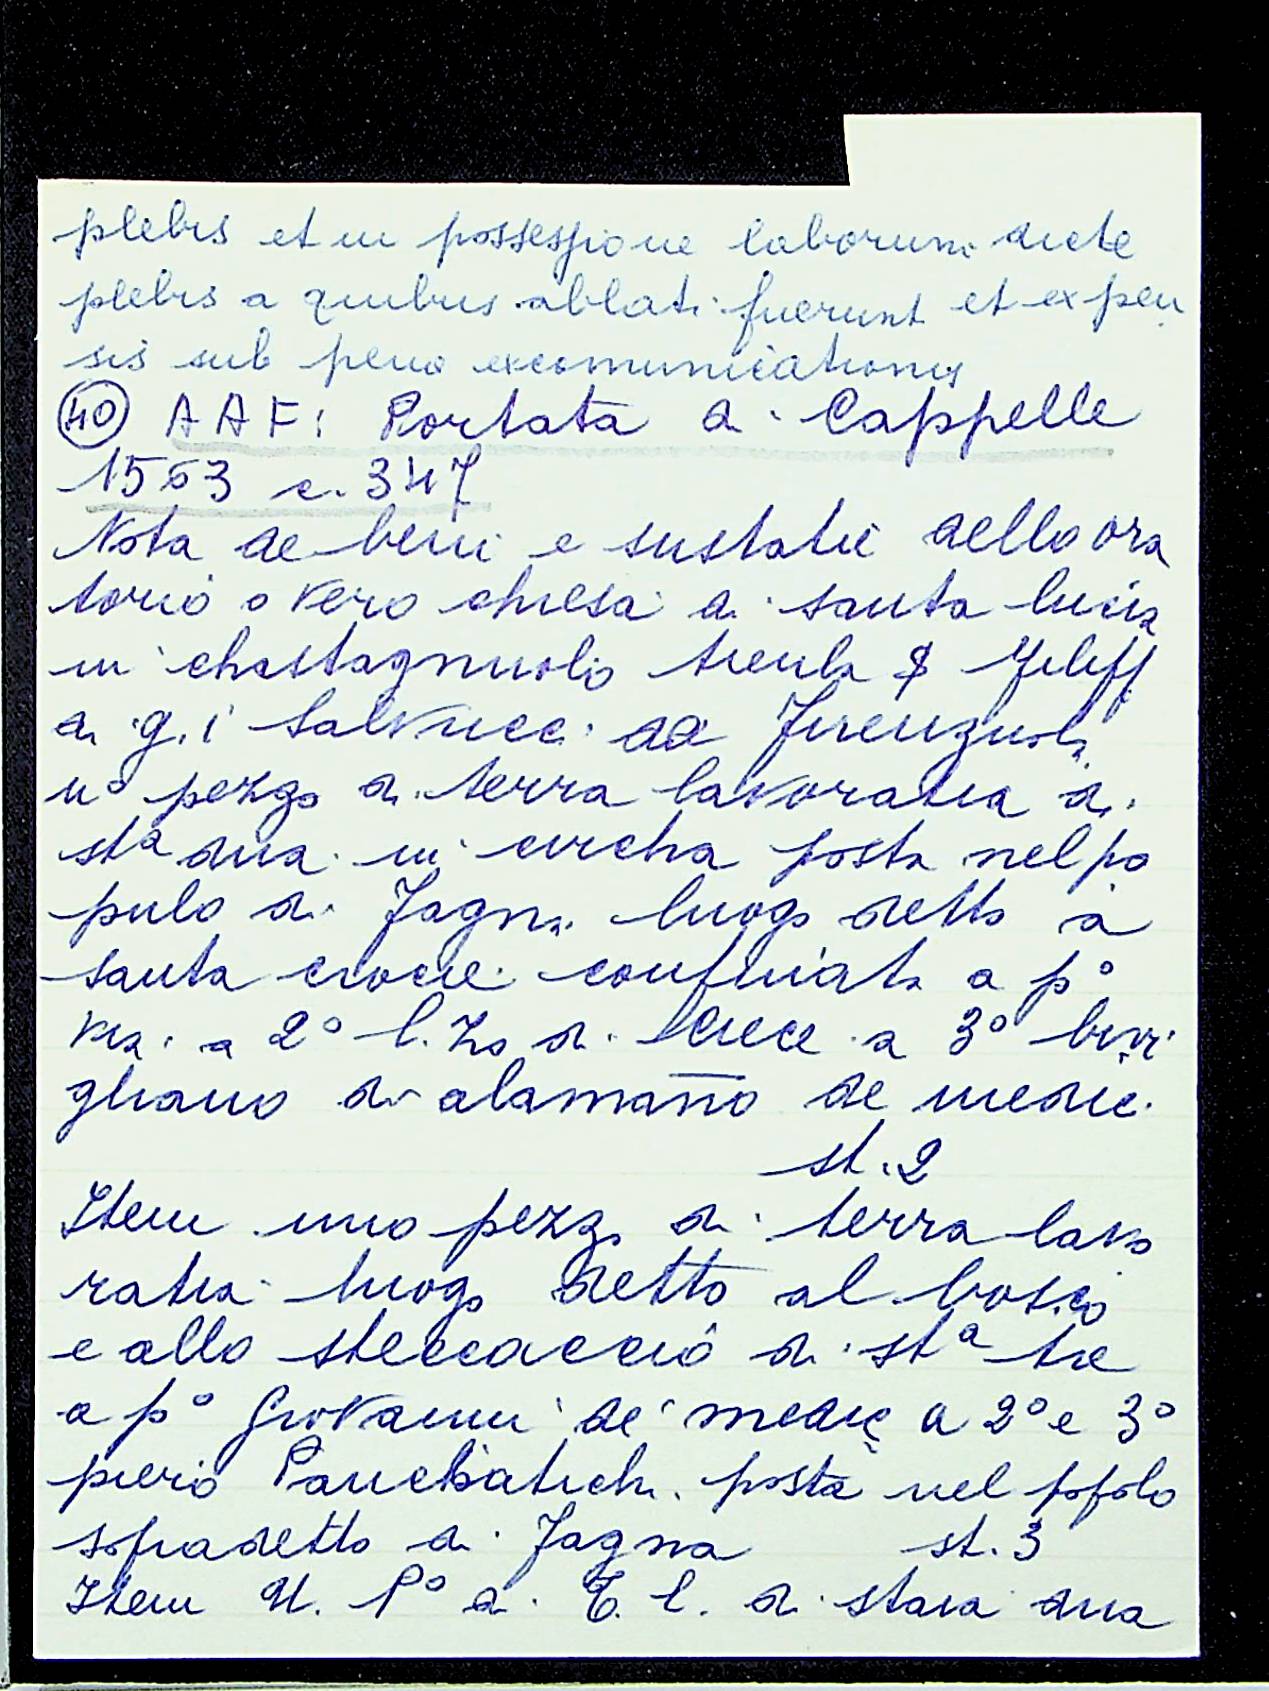 plebis et in possessione laborum dicte
plebis a quibus ablati fuerunt et expen
sis sub pena excomunicationis
40 AAF: Portata di Cappelle
1563 c. 347
Nota de beni e sustatie dello ora
torio o vero chiesa di santa lucia
in chastagnuolo tienla
di g.i Salvucci da Firenzuola
uº pezzo di terra lavoratia di
stª dua in circha posta nel po
pulo di Fagna luogo detto a
santa croce confinata a pº
via a 2º l. Zo di a 3º
gliano di alamanno de medici
st. 2
Item uno pezzo di terra lavo
ratia luogo detto al bosco
e allo steccaccio di stª tre
a pº Giovanni de medici a 2º e 3º
piero Panciatichi posta nel popolo
sopradetto di Fagna st. 3
Item U. Pº di T. l. di staia dua